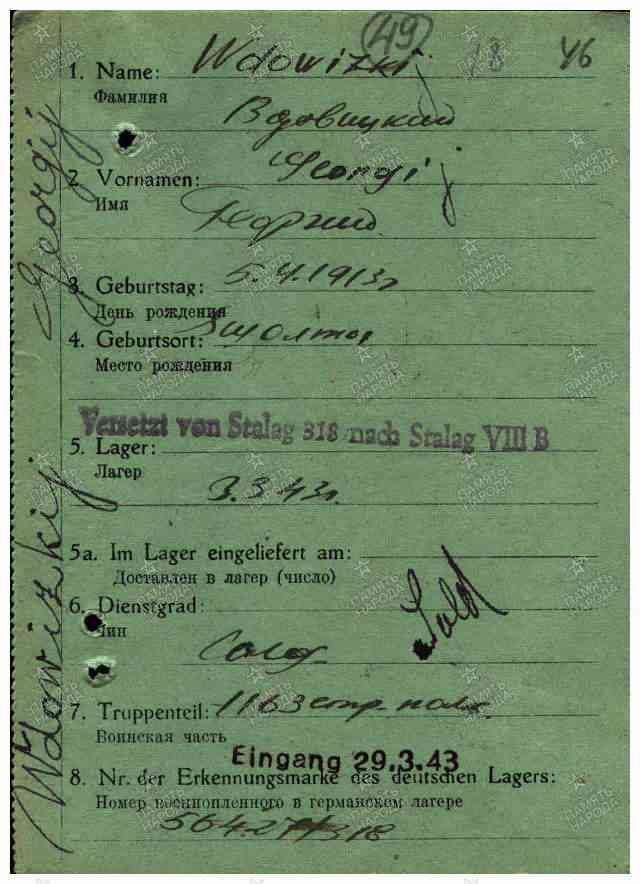 49
46
1. Name: Wdowizkij
Фамилия
Вдовицкий
2. Vornamen: Georgij
Имя
Георгий
3. Geburtstag: 5.4.1913г
День рождения
4. Geburtsort:
Место рождения
Versetzt von Stalag 318 nach Stalag VIII B
5. Lager:
Лагер
3.3.43г.
5a. Im Lager eingeliefert am:
Доставлен в лагер (число)
6. Dienstgrad:
Чин
Sold
Солд.
7. Truppenteil: 1163 стр. полк.
Воинская часть
Eingang 29.3.43
8. Nr. der Erkennungsmarke des deutschen Lagers:
Номер военнопленного в германском лагере
318
Wdowizkij Georgij
ПАМЯТЬ НАРОДА